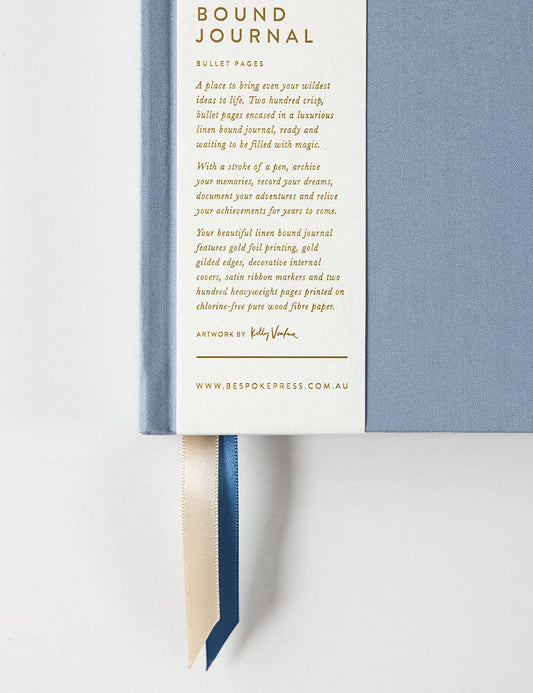 BOUND
JOURNAL
BULLET PAGES
A place to bring even your wildest
ideas to life. Two hundred crisp,
bullet pages encased in a luxurious
linen bound journal, ready and
waiting to be filled with magic.
With a stroke of a pen, archive
your memories, record your dreams,
document your adventures and relive
your achievements for years to come.
Your beautiful linen bound journal
features gold foil printing, gold
gilded edges, decorative internal
covers, satin ribbon markers and two
hundred heavyweight pages printed on
chlorine-free pure wood fibre paper.
ARTWORK BY Kelly Ventura
WWW.BESPOKEPRESS.COM.AU